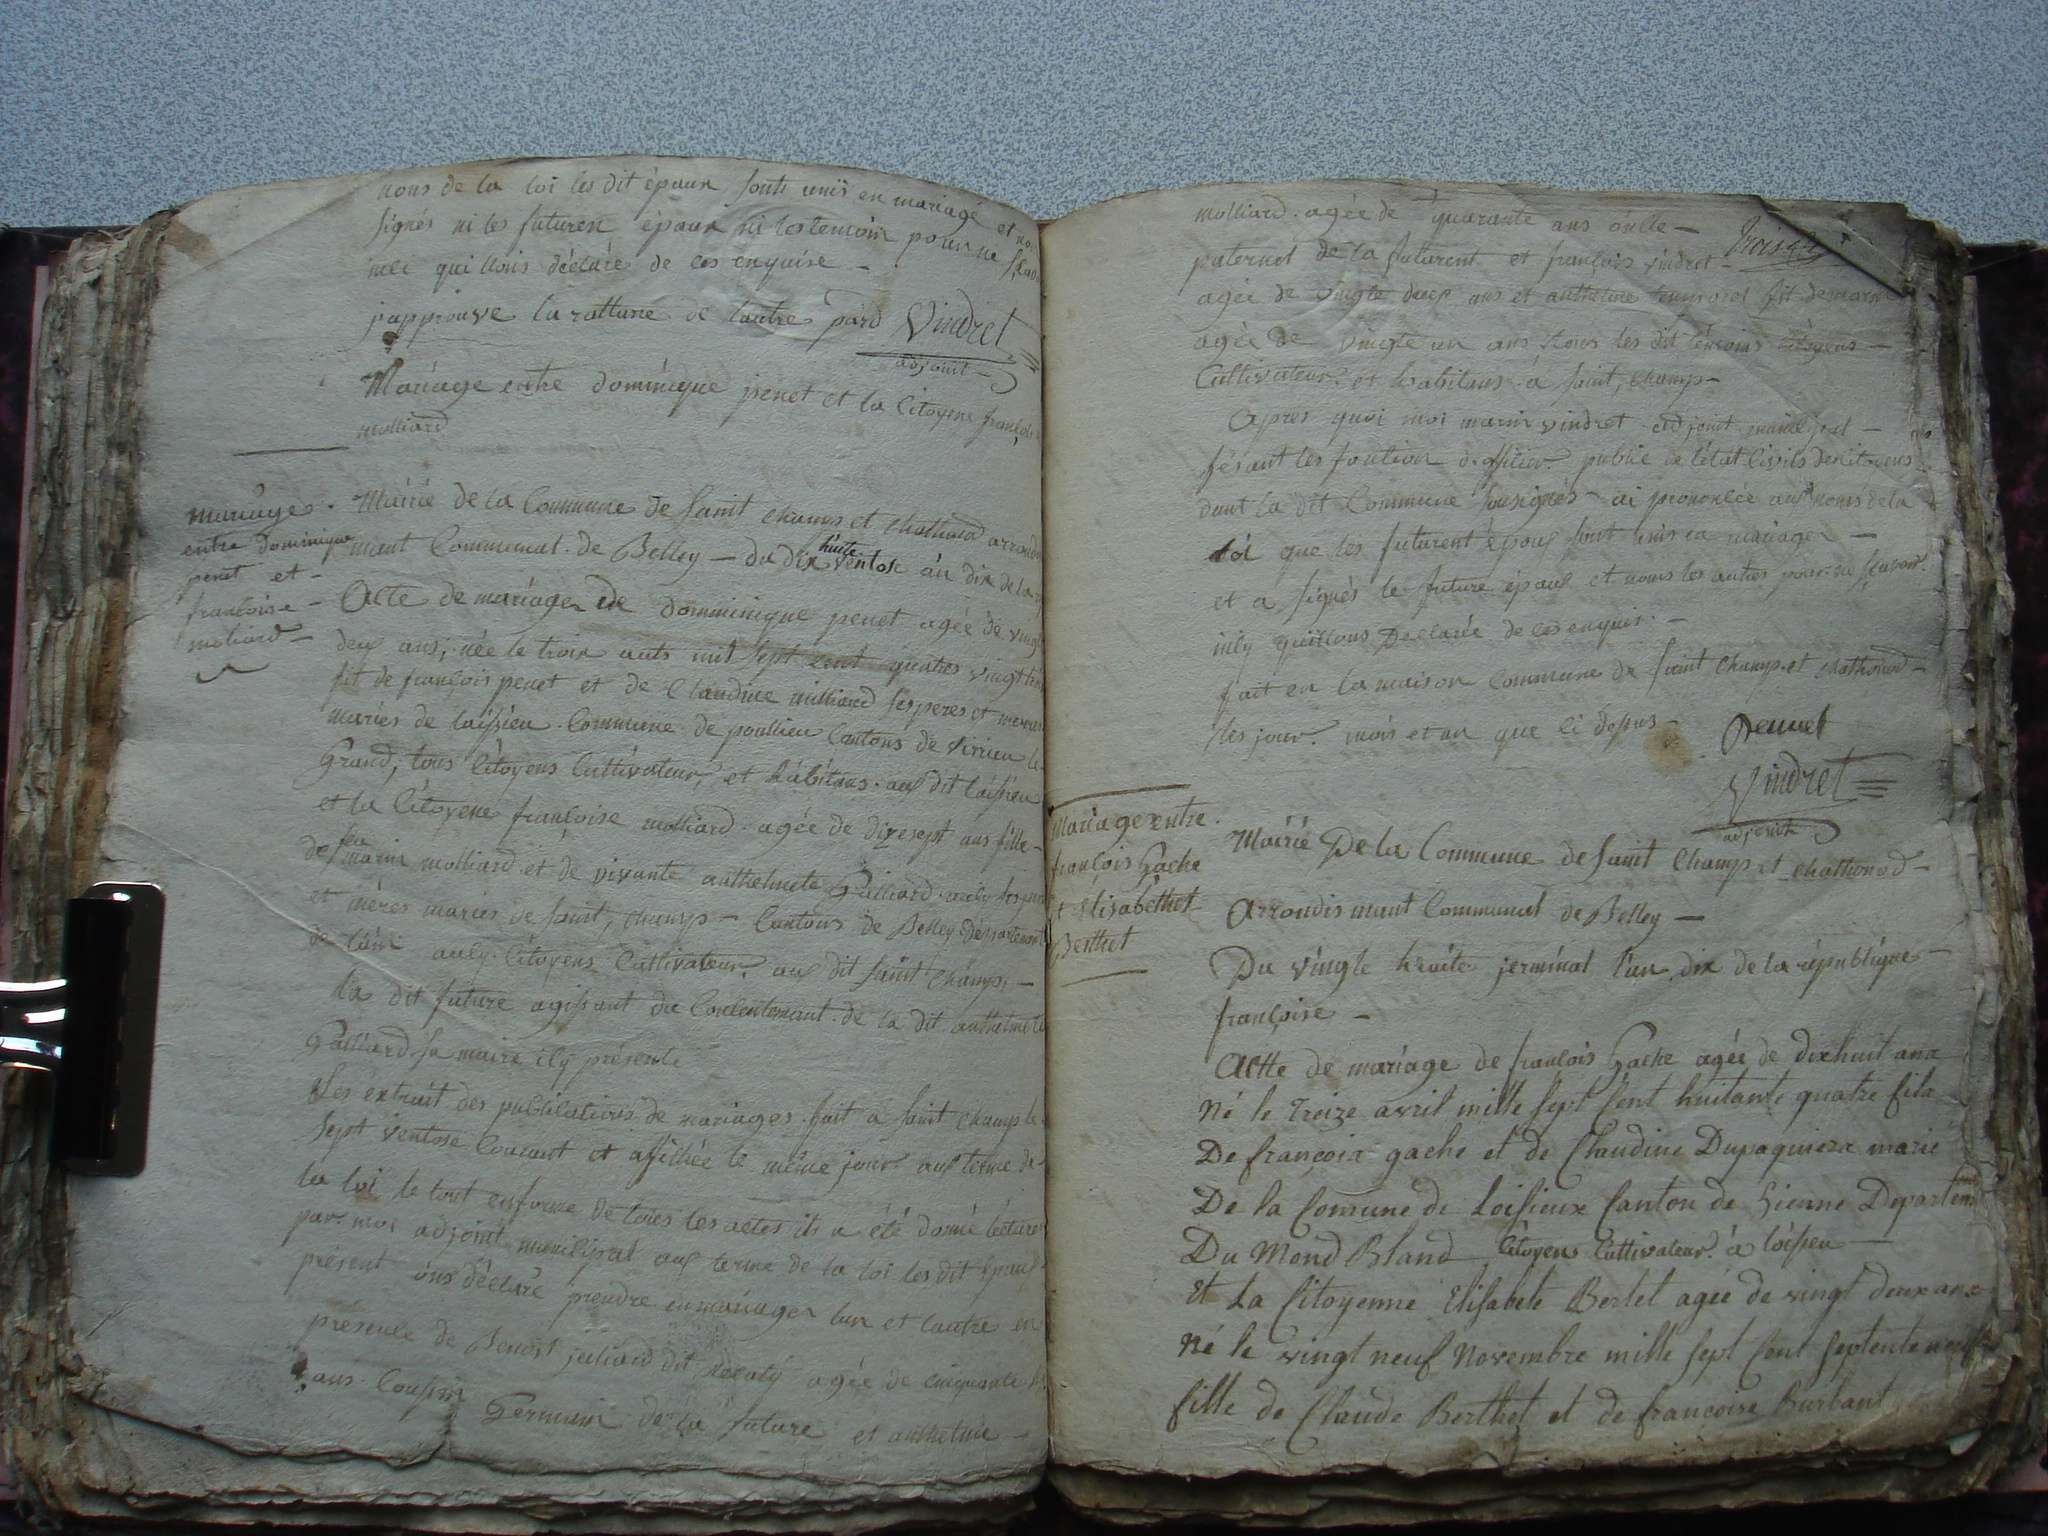 nons de la loi les dit épaux sonts unis en mariage et no
signés ni les futures épaux ni les temoin pour ne scavo
illi qui llous déclaré de ces enquise —
japprouve la ratturie de lautre pard Vindret
adjoint
Mariage entre dominique penet et la Citoyene françoise
molliard
mariages.
entre dominique
penet et -
francoise -
moliard -
Mairie de la Commune de Saint champs et chathonod arrondis
mant Communal de Belley — du dix huite ventose an dix de la
Acte de mariages de domminique penet agée de vingt
deux ans, née le troix auts mil sept cent quatres vingt
fil de françois penet et de Claudine milliard ses peres et meres
maries de laissieu Commune de poullieu Cantons de Virieu le
Grand, tous Citoyens Cultivateur, et habitans aux dit laissieu
et la Citoyene françoise molliard agée de dixesept ans fille -
de feu marin molliard et de vivante anthelmete Galliard
et mères maries de saint, champs - Cantons de Belley département
de lain Citoyens Cultivateur aux dit saint champs, -
la dit future agissant du Consentemant de la dit anthelmete
Galliard sa maire ily présente
Les extrait des publications de mariages fait a saint champ le
sept ventose Courant et afichée le même jour aux terme de
la loi le tout enforme de toies les actes ils a été donné lecture
par moi adjoint municipal aux terme de la loi les dit Epaux
présent ons déclaré prendre en mariager lun et lautre en
présence de Benoit juliard dit agée de cinquante
ans Cousin Germain de la future et anthelme -
molliard agée de quarante ans oncle -
paternel de la futurent et françois vindret -
agée de vingte deux ans et anthelme fil
agée de vingte un ans tous les dit témoins citoyens -
Cultivateur et habitans a saint, champs -
Apres quoi moi marin vindret adjoint municipal -
fésant les fontion d'officier public de l'état Civils des citoyens
dant la dit Commune sousignés ai prononcée aux noms de la
loi que les futurent époux sont unis en mariager -
et a signés le future épaux et nous les autres pour ne scavoir
illy quillous Declarée de ces enquis. -
fait en la maison Commune de Saint Champs et chathonod -
les jour mois et an que ci desus -
Pennet
Vindret
adjoint
Mariage entre
françois Gache
et Elisabethet
Berthet
Mairie De la Commune de saint Champs et chathonod -
Arrondis mant Communal de Belley —
Du vingte heuite jerminal l'an dix de la république -
françoise -
Actte de mariage de francois Gache agée de dixhuit ans
Né le Treize avril mille sept sent huitante quatre fils
De françois gache et de Claudine Dupaquiere marié
De la Comune de Loisieux Canton de Hienne Departem
Du Mond Bland Citoyens Cultivateur à loisieu —
Et La Citoyenne Elisabete Bertet agée de vingt deux ans
Né le vingt neuf Novembre mille sept sent septente neuf
fille de Claude Berthet et de francoise Burtant